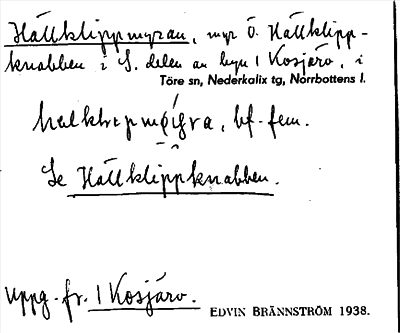 Hällklippmyran, myr Ö. Hällklipp-
knabben i S. delen av byn 1 Kosjärv, i
Töre sn, Nederkalix tg, Norrbottens l.
bf. fem.
Se Hällklippknabben.
Uppg. fr. 1 Kosjärv.
EDVIN BRÄNNSTRÖM 1938.